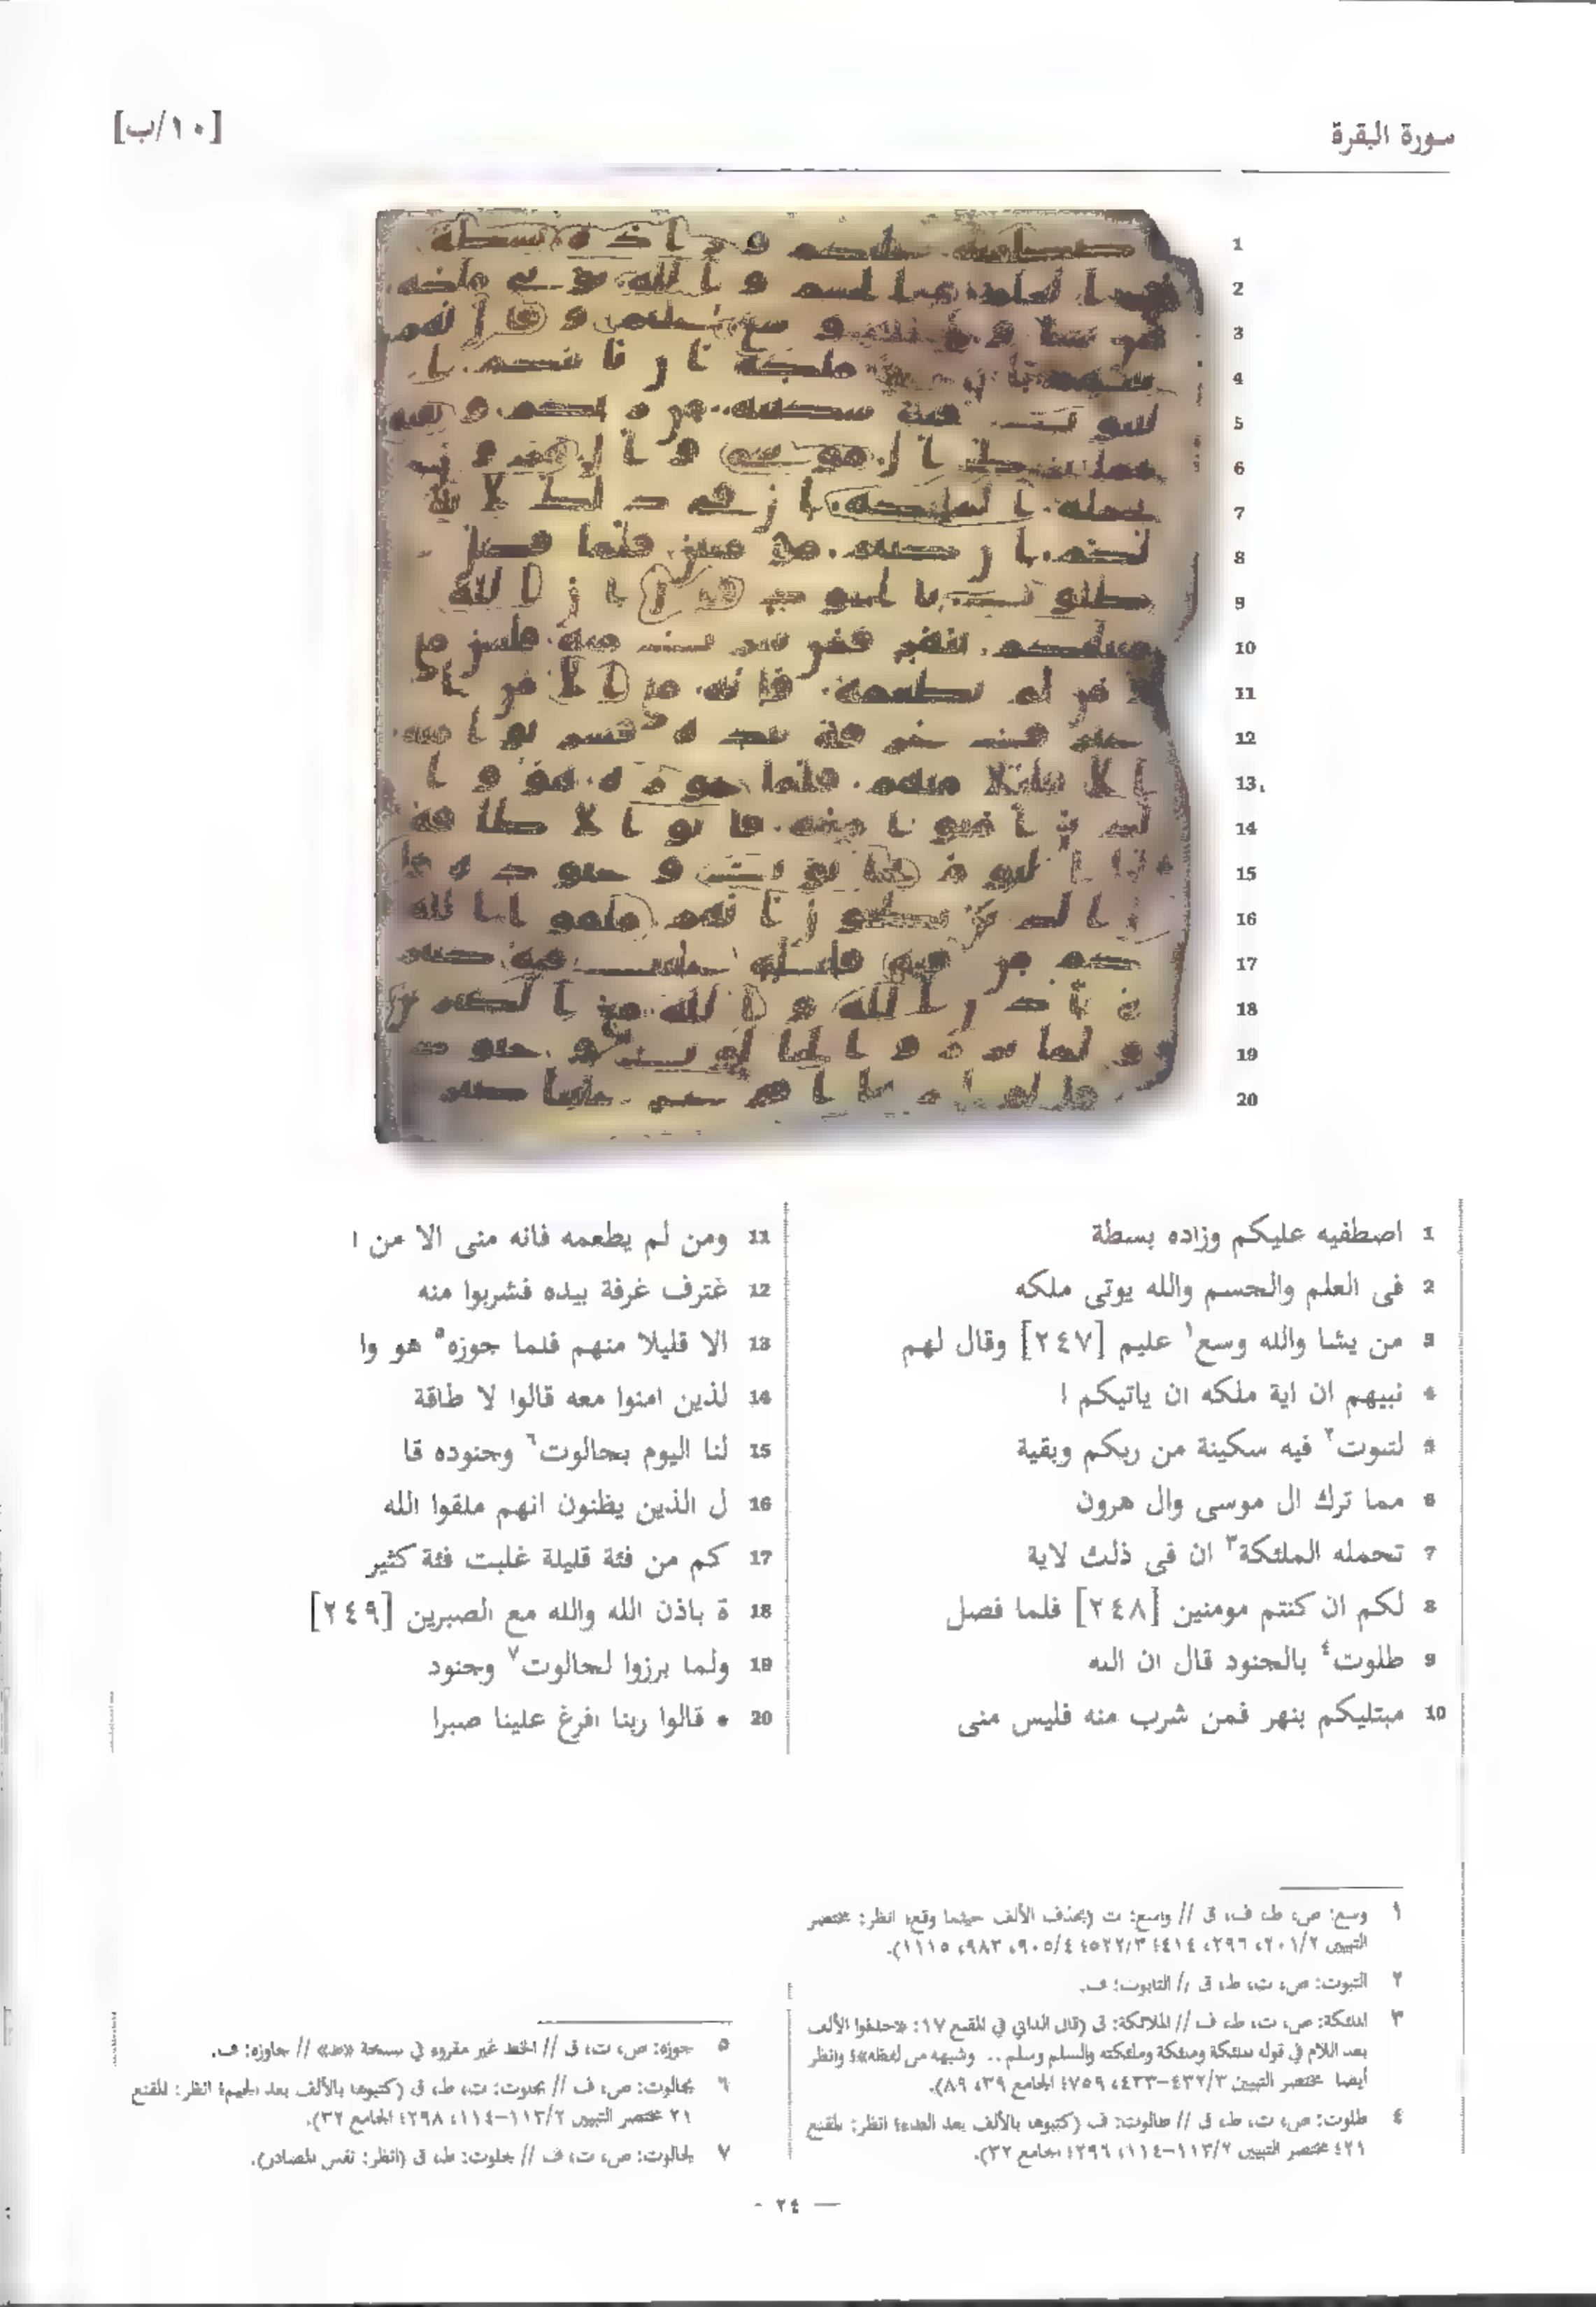 سورة البقرة
[١٠/ب]
1
2
3
4
5
6
7
8
9
10
11
12
13
14
15
16
17
18
19
20
1 اصطفيه عليكم وزاده بسطة
2 فى العلم والجسم والله يوتى ملكه
3 من يشا والله وسع١ عليم [٢٤٧] وقال لهم
4 نبيهم ان اية ملكه ان ياتيكم ا
5 لتبوت٢ فيه سكينة من ربكم وبقية
6 مما ترك ال موسى وال هرون
7 تحمله الملئكة٣ ان فى ذلك لاية
8 لكم ان كنتم مومنين [٢٤٨] فلما فصل
9 طلوت٤ بالجنود قال ان الله
10 مبتليكم بنهر فمن شرب منه فليس منى
11 ومن لم يطعمه فانه منى الا من ا
12 غترف غرفة بيده فشربوا منه
13 الا قليلا منهم فلما جوزه٥ هو وا
14 لذين امنوا معه قالوا لا طاقة
15 لنا اليوم بجالوت٦ وجنوده قا
16 ل الذين يظنون انهم ملقوا الله
17 كم من فئة قليلة غلبت فئة كثير
18 ة باذن الله والله مع الصبرين [٢٤٩]
19 ولما برزوا لجالوت٧ وجنود
20 ه قالوا ربنا افرغ علينا صبرا
١ وسع: ص، ط، ف، ق // واسع: ت (بحذف الألف حيثما وقع؛ انظر: مختصر
التبيين ٢٠١/٢، ٢٩٦، ٤١٤؛ ٥٢٢/٣؛ ٩٠٥/٤، ٩٨٣، ١١١٥).
٢ التبوت: ص، ت، ط، ق // التابوت: ف.
٣ الملئكة: ص، ت، ط، ف // الملائكة: ق (قال الداني في المقنع ١٧: «حذفوا الألف
بعد اللام في قوله ملئكة وملئكة وملئكته والسلم وسلم .. وشبهه من لفظه»؛ وانظر
أيضا مختصر التبيين ٤٣٢/٣-٤٣٣، ٧٥٩؛ الجامع ٣٩، ٨٩).
٤ طلوت: ص، ت، ط، ق // طالوت: ف (كتبوها بالألف بعد الطاء؛ انظر: المقنع
٢١؛ مختصر التبيين ١١٣/٢-١١٤، ٢٩٦؛ الجامع ٣٢).
٥ جوزه: ص، ت، ق // الخط غير مقروء في نسخة «ط» // جاوزه: ف.
٦ بجالوت: ص، ف // بجلوت: ت، ط، ق (كتبوها بالألف بعد الجيم؛ انظر: المقنع
٢١ مختصر التبيين ١١٣/٢-١١٤، ٢٩٨؛ الجامع ٣٢).
٧ لجالوت: ص، ت، ف // لجلوت: ط، ق (انظر: نفس المصادر).
- ٢٤ —